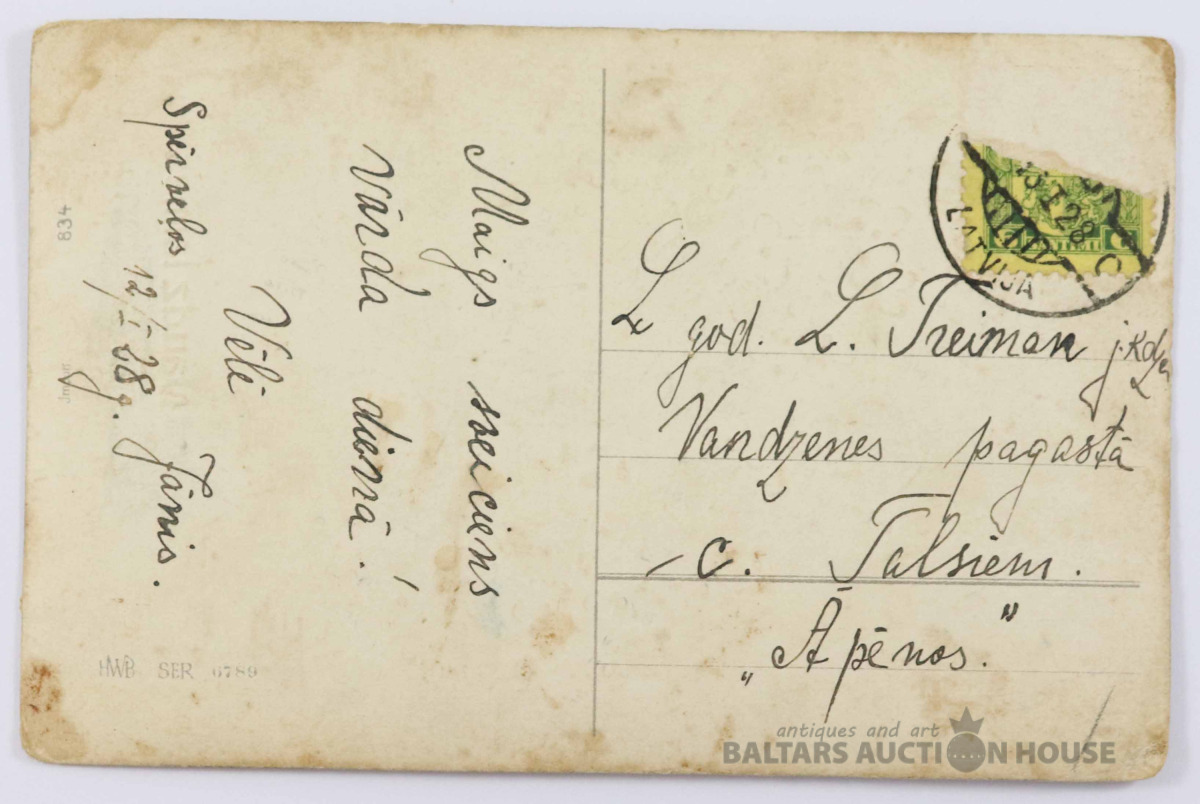 Maigs sveiciens
Vārda dienā!
Vēlē
Jānis.
Spirveļos
12/I 28g.
834
HWB SER 6789
L. god. L. Treiman j.kdze
Vandzenes pagastā
c. Talsiem.
„Āpēnos."
I 28
LATVIJA
antiques and art
BALTARS AUCTION HOUSE